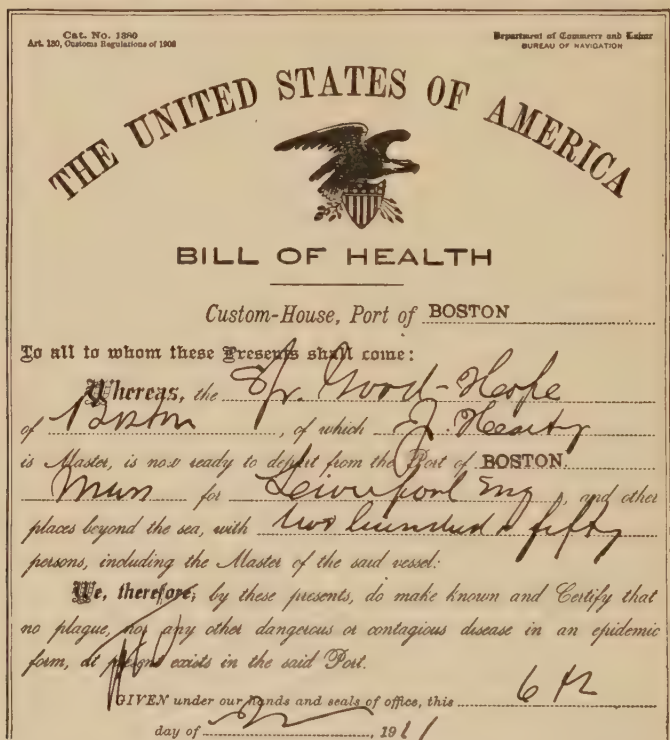 Cat. No. 1380
Art. 130, Customs Regulations of 1908
Department of Commerce and Labor
BUREAU OF NAVIGATION
THE UNITED STATES OF AMERICA
BILL OF HEALTH
Custom-House, Port of BOSTON
To all to whom these Presents shall come:
Whereas, the Str. Good-Hope
of Boston, of which J. Hearty
is Master, is now ready to depart from the Port of BOSTON.
for Liverpool Eng, and other
places beyond the sea, with two hundred & fifty
persons, including the Master of the said vessel:
We, therefore, by these presents, do make known and Certify that
no plague, nor any other dangerous or contagious disease in an epidemic
form, at present exists in the said Port.
GIVEN under our hands and seals of office, this 6th
day of , 191